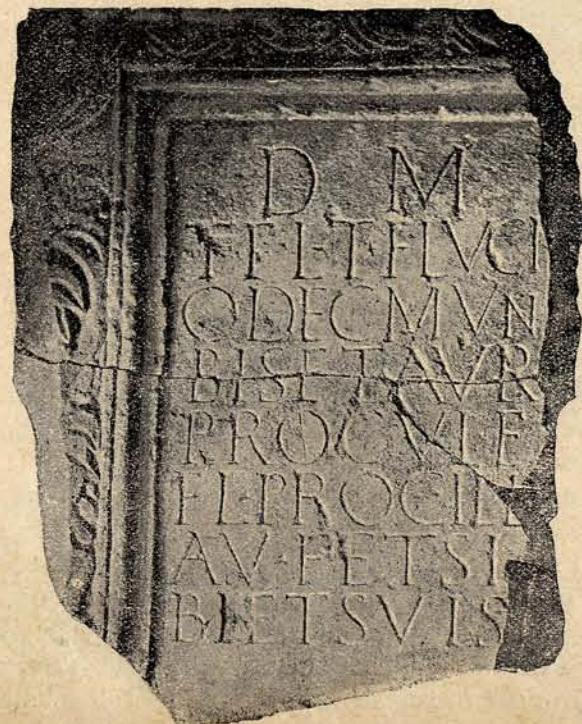 D M
T·F·L·T·FLVCI
O DEC MVN
BIS ET AVR
PROCVLE
FL·PROCILL
AV·F ET SI
BI ET SVIS